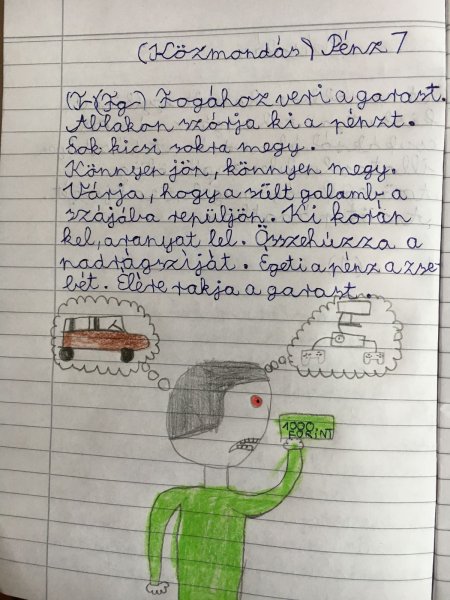 (Közmondás) Pénz 7
Fogához veri a garast.
Ablakon szórja ki a pénzt.
Sok kicsi sokra megy.
Könnyen jön, könnyen megy.
Várja, hogy a sült galamb a
szájába repüljön. Ki korán
kel, aranyat lel. Összehúzza a
nadrágszíját. Égeti a pénz a zse-
bét. Élére rakja a garast.
1000
FORINT